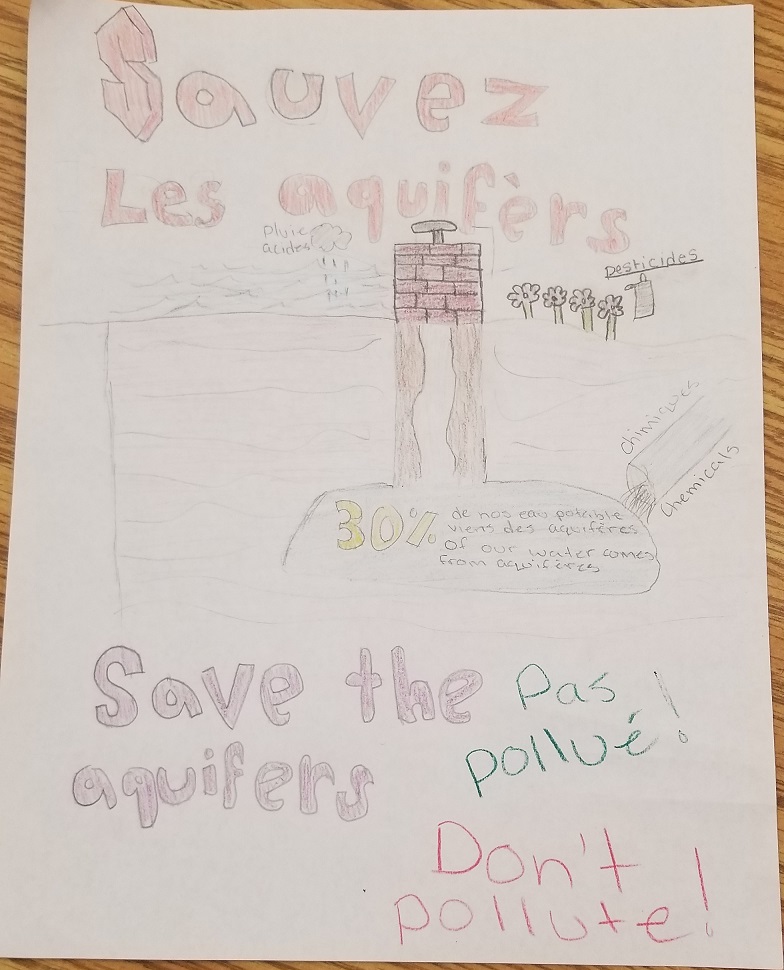 Sauvez
Les aquifèrs
pluie
acides
pesticides
chimiques
chemicals
30% de nos eau potable
viens des aquifères
of our water comes
from aquifères
Save the
aquifers
Pas
pollué!
Don't
pollute!